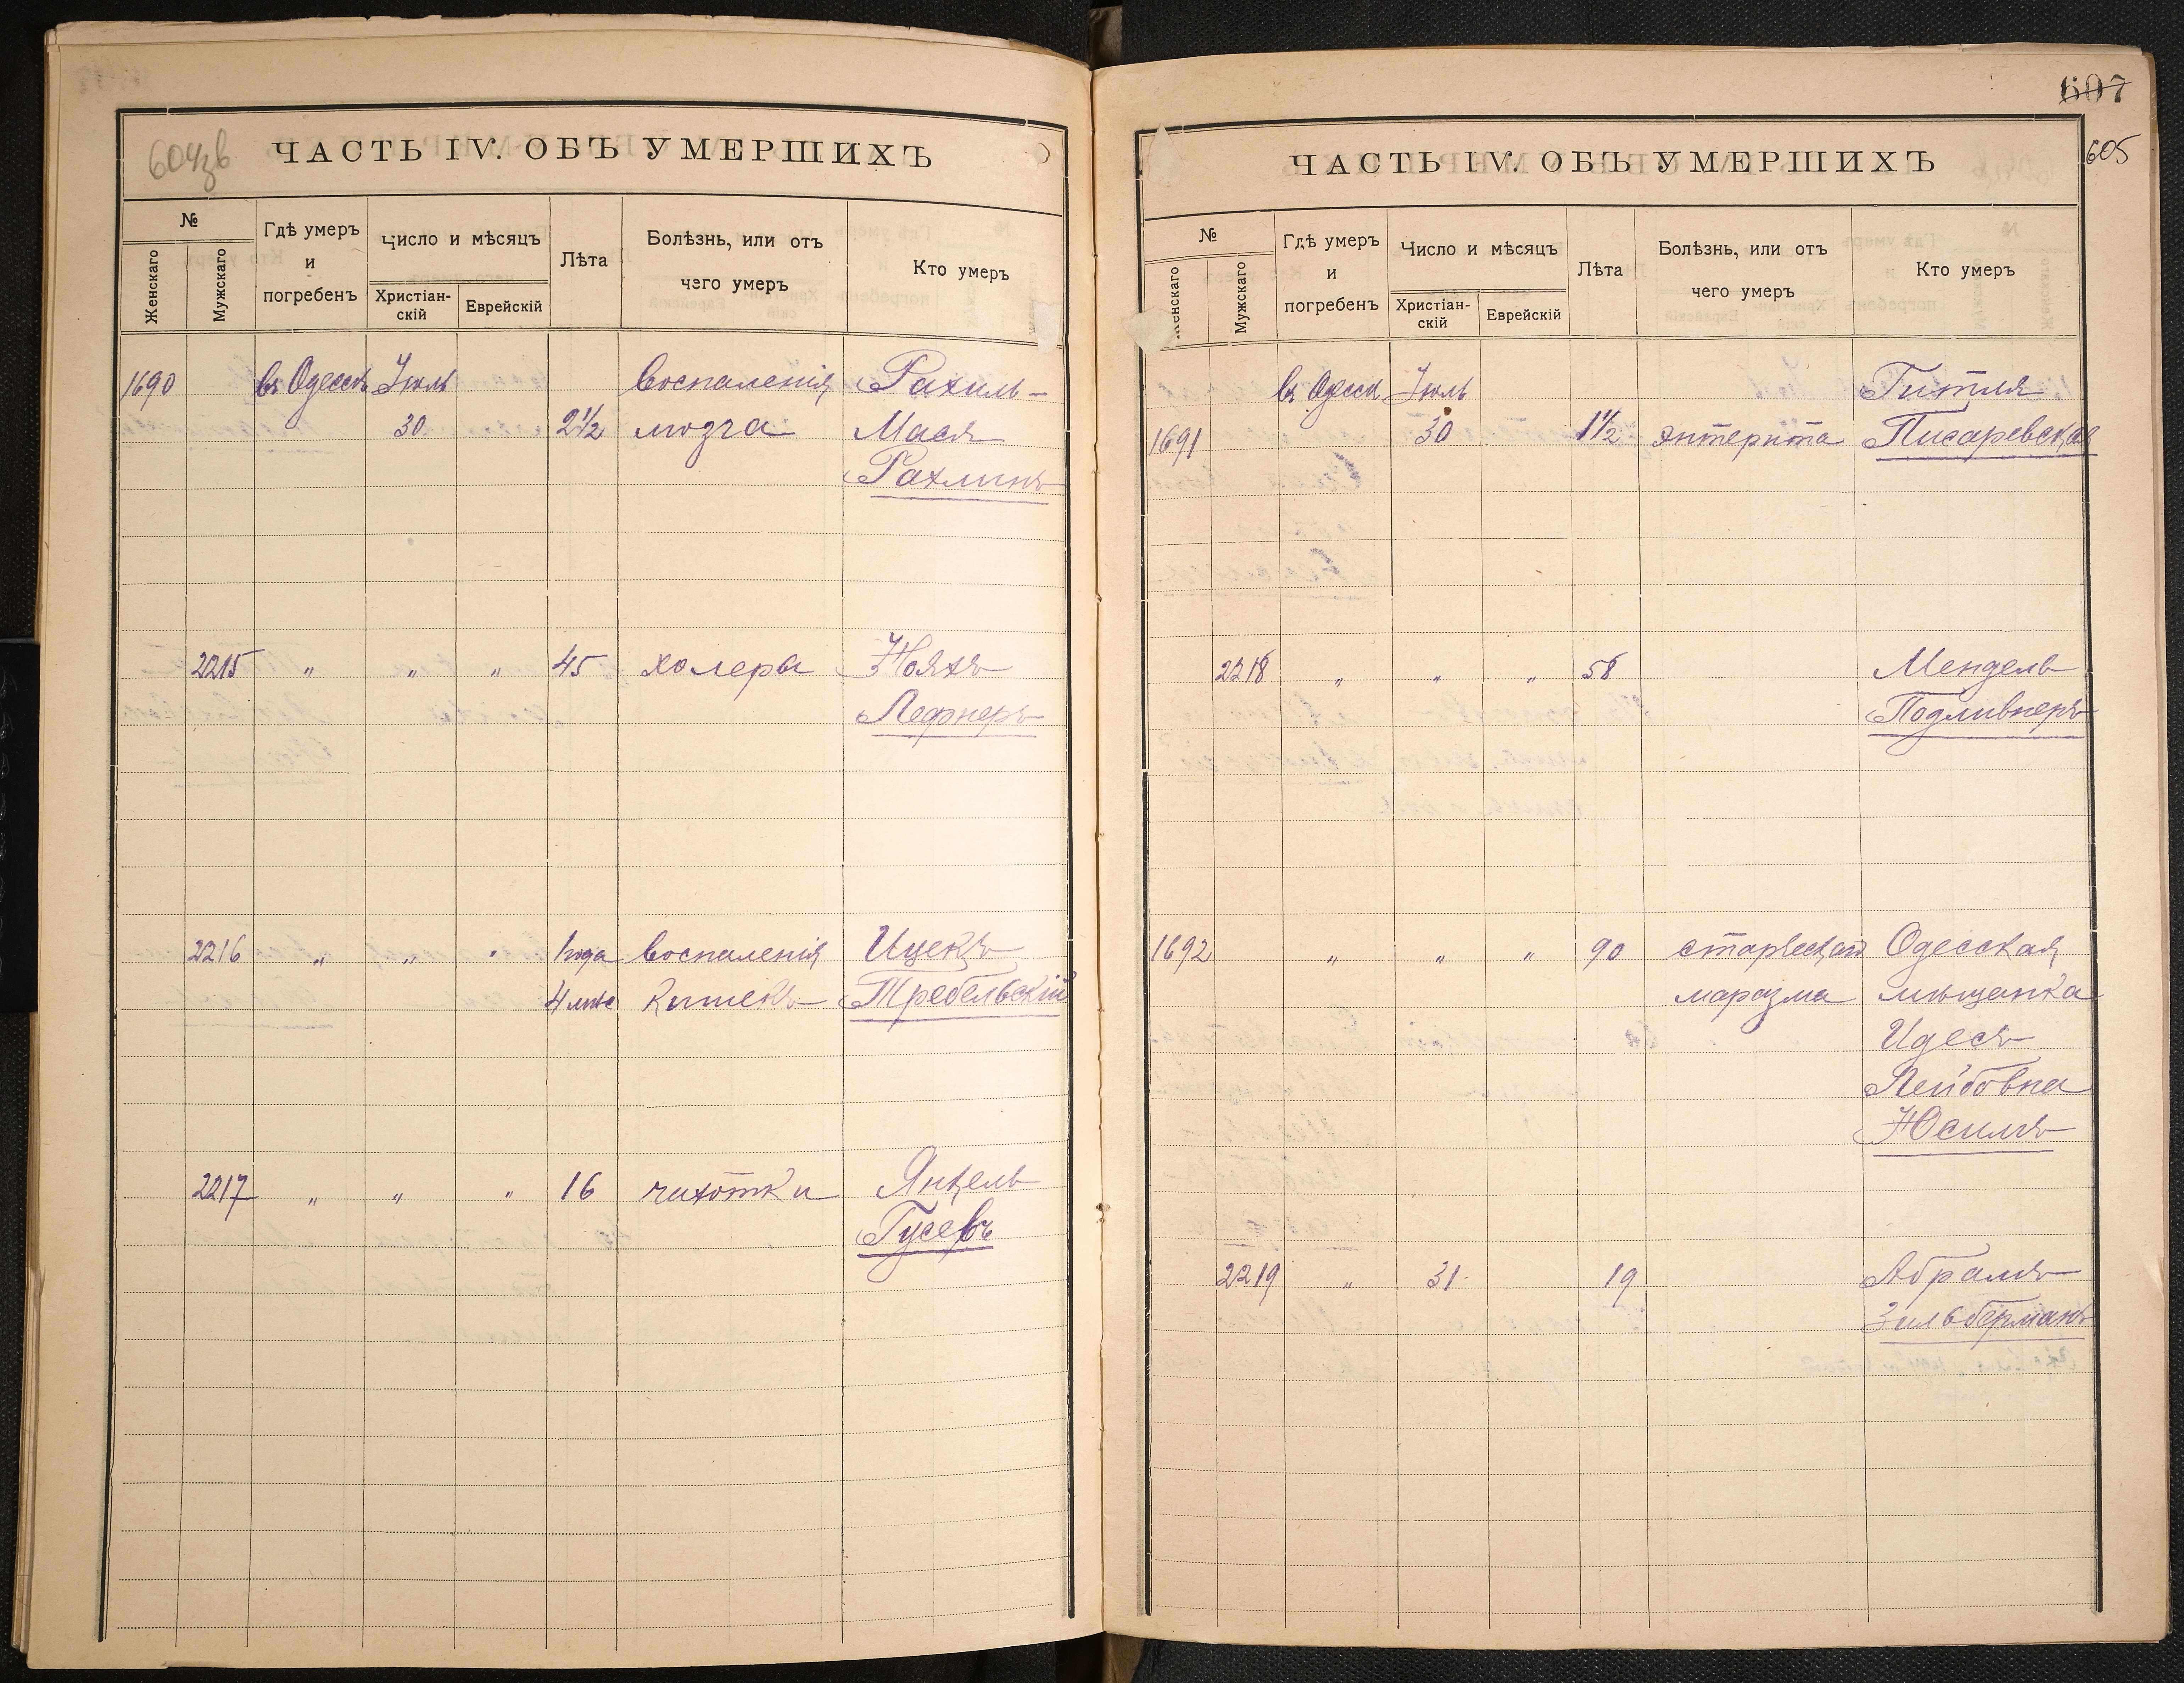 604зв
ЧАСТЬ IV. ОБЪ УМЕРШИХЪ
№
Женскаго
Мужскаго
Гдѣ умеръ
и
погребенъ
Число и мѣсяцъ
Христіан-
скій
Еврейскій
Лѣта
Болѣзнь, или отъ
чего умеръ
Кто умеръ
1690 въ Одессѣ Іюль воспаленія Рахиль-
30 2½ мозга Мася
Рахлинъ
2215 " " " 45 холеры Ноахъ
Лефнеръ
2216 " " " 1 года воспаленія Ицекъ
4 мѣс кишекъ Требельскій
2217 " " " 16 чахотки Янкель
Гусевъ
607
605
ЧАСТЬ IV. ОБЪ УМЕРШИХЪ
№
Женскаго
Мужскаго
Гдѣ умеръ
и
погребенъ
Число и мѣсяцъ
Христіан-
скій
Еврейскій
Лѣта
Болѣзнь, или отъ
чего умеръ
Кто умеръ
въ Одесс Іюль Гитля
1691 30 1½ энтерита Писаревская
2218 " " " 58 Мендель
Подливнеръ
1692 " " " 90 старческаго Одесская
маразма мѣщанка
Идесъ
Лейбовна
Юсимъ
2219 " 31 19 Абрамъ
Зильберманъ